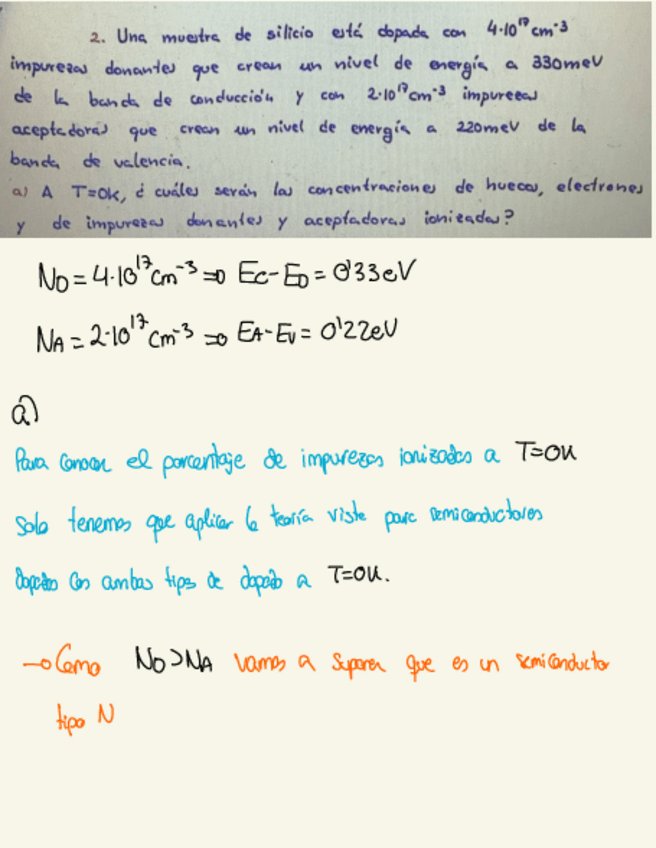 2. Una muestra de silicio está dopada con 4·10¹⁷ cm⁻³
impurezas donantes que crean un nivel de energía a 330meV
de la banda de conducción y con 2·10¹⁷ cm⁻³ impurezas
aceptadoras que crean un nivel de energía a 220meV de la
banda de valencia.
a) A T=0K, ¿ cuáles serán las concentraciones de huecos, electrones
y de impurezas donantes y aceptadoras ionizadas?
N_D = 4·10¹⁷ cm⁻³ ⇒ E_C-E_D = 0'33eV
N_A = 2·10¹⁷ cm⁻³ ⇒ E_A-E_V = 0'22eV
a)
Para conocer el porcentaje de impurezas ionizadas a T=0K
solo tenemos que aplicar la teoría vista para semiconductores
dopados con ambos tipos de dopado a T=0K.
→ Como N_D>N_A vamos a suponer que es un semiconductor
tipo N